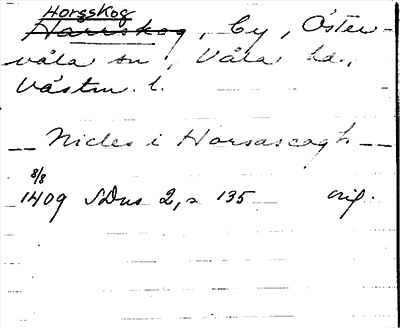 Horsskog
Harrskog, by, Öster-
våla sn, Våla hd.,
Västm. l.
__ Nicles i Horsascogh __
8/8
1409 SDns 2, s 135 orig.